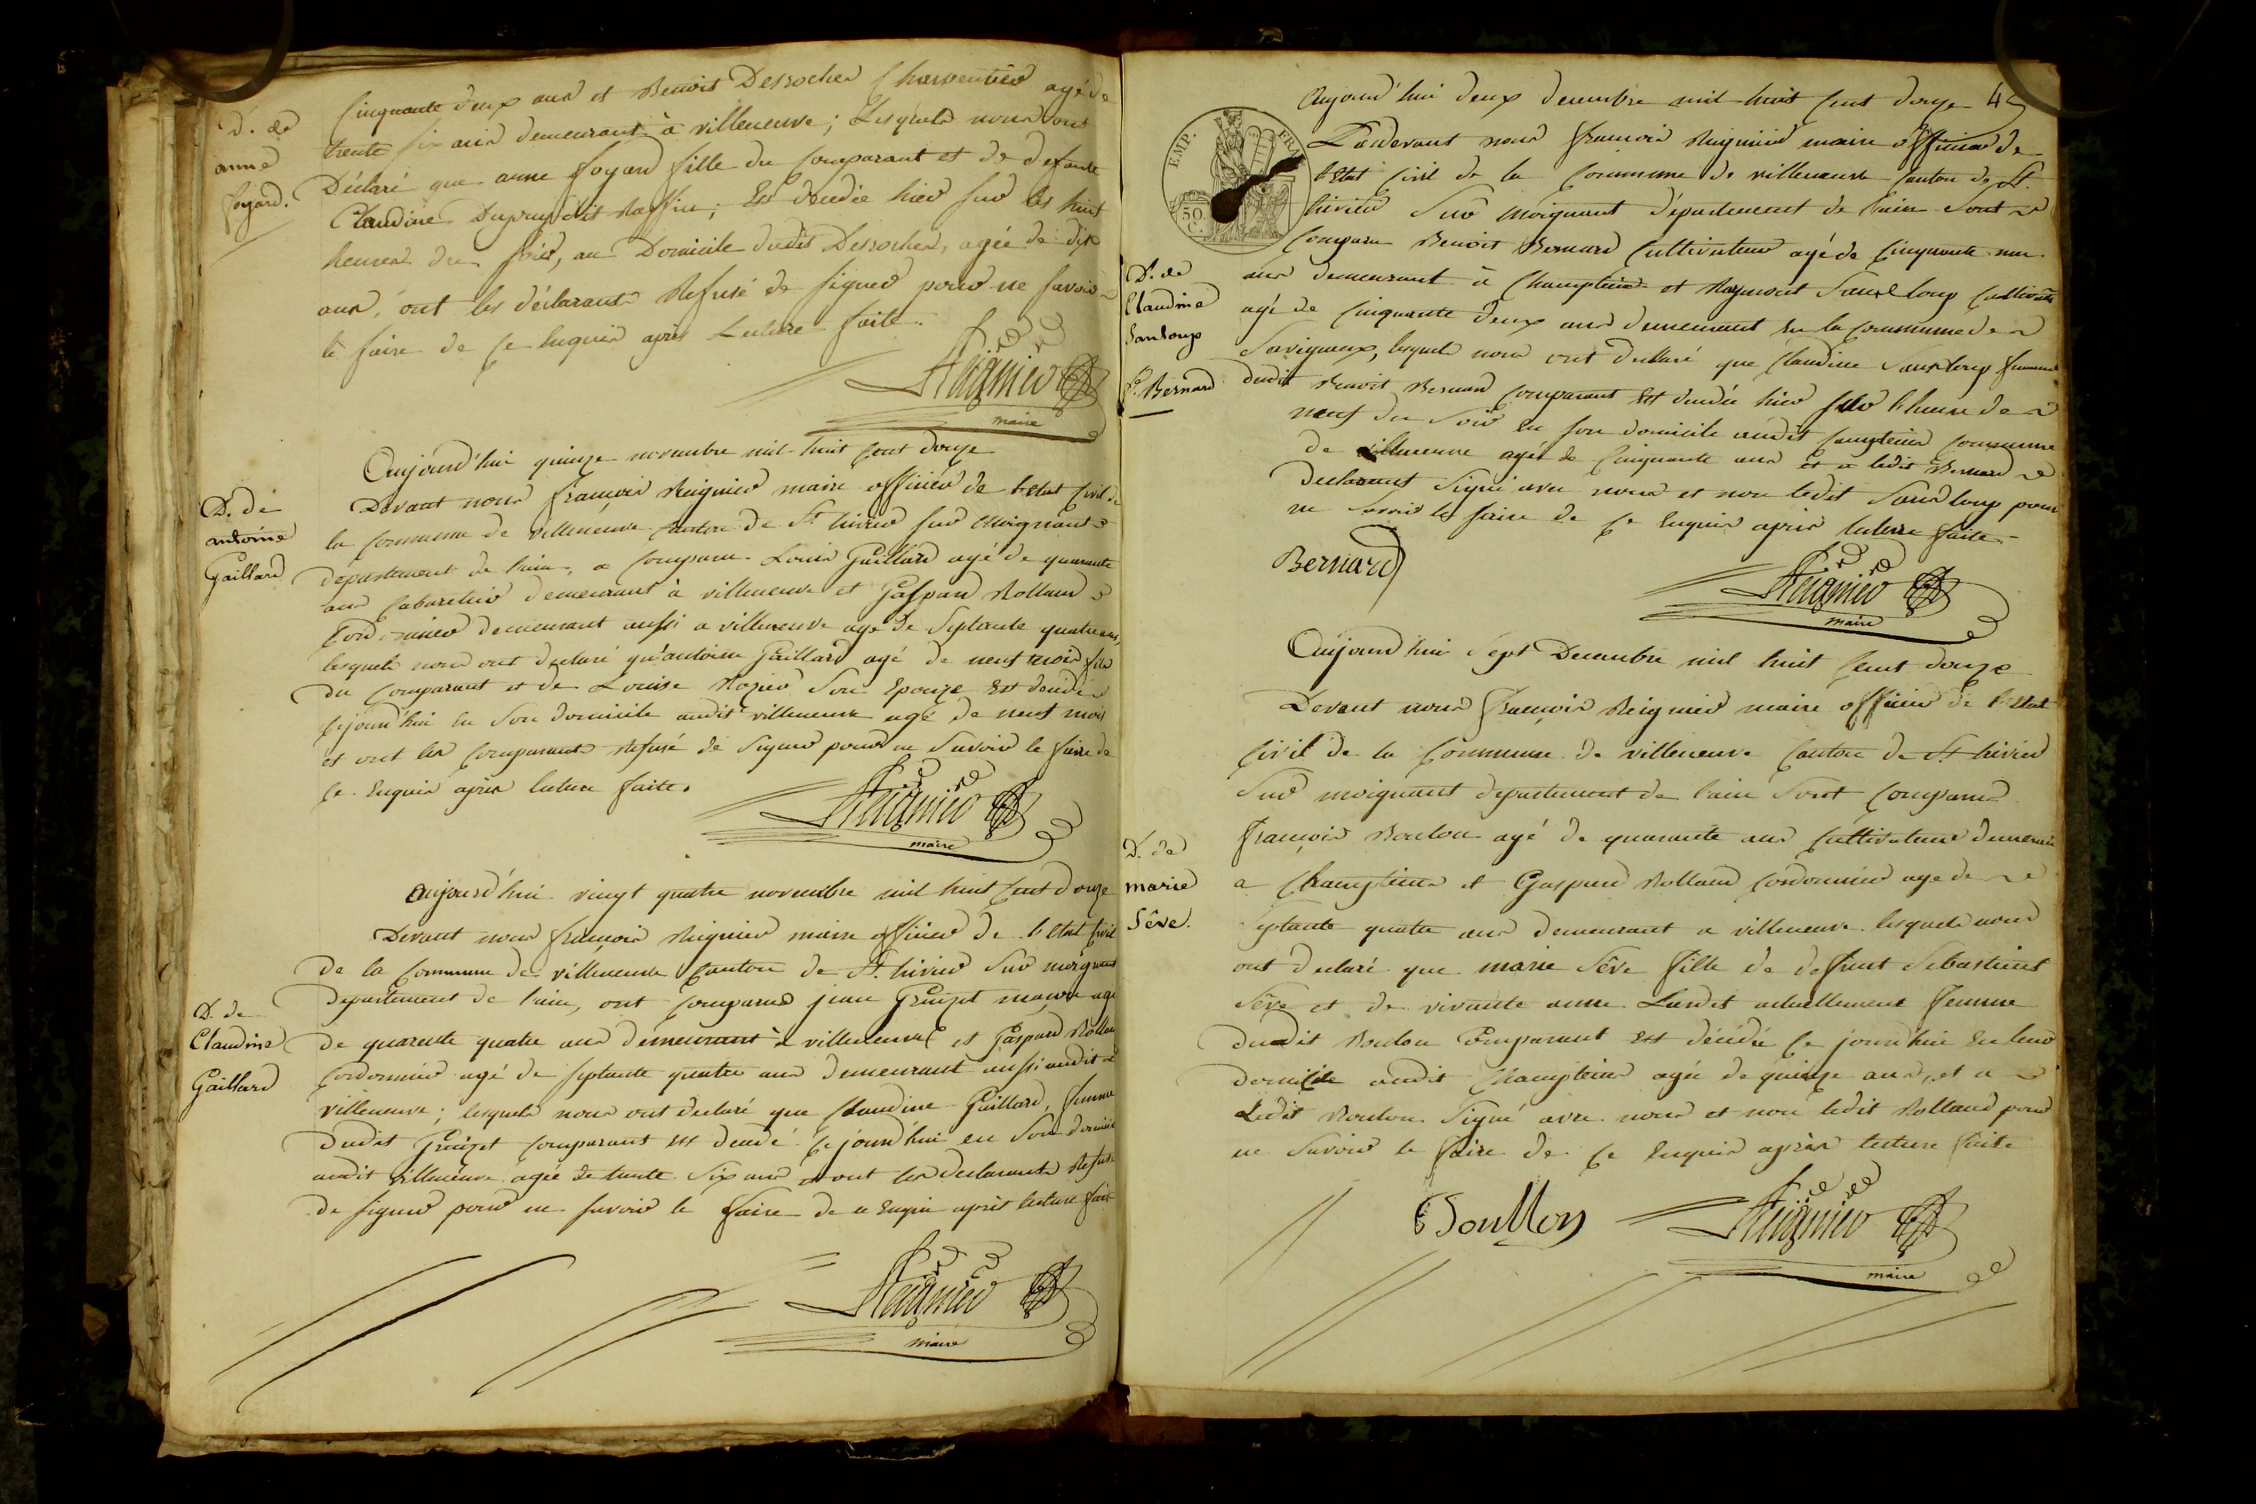 Cinquante deux ans et Benoit Desroches Charpentier agé de
trente six ans demeurant à villeneuve; Lesquels nous ont
D. de
anne
foyard.
Déclaré que anne foyard fille du Comparant et de defunte
Claudine Dupuy dit Raffin; Est décédée hier sur les huit
heures du soir, au Domicile dudit Desroches, agée de dix
ans, ont les déclarants Refusé de signer pour ne savoir
le faire de Ce Enquis après Lecture faite.
Reignier
maire
Aujourd'hui quinze novembre mil huit Cent douze
D. de
antoine
Gaillard
Devant nous françois Reignier maire officier de l'Etat Civil de
la Commune de villeneuve Canton de St. trivier sur Moignant
departement de l'ain, a Comparu Louis Gaillard agé de quarante
ans Cabaretier demeurant à villeneuve et Gaspard Rolland
Cordonnier demeurant aussi a villeneuve age de Septante quatre ans,
lesquels nous ont declaré qu'antoine Gaillard agé de neuf mois fils
du Comparant et de Louise Rozier Son Epouze Est décédé
Cejourd'hui En Son domicile audit villeneuve agé de neuf mois
et ont les Comparants Refusé de Signer pour ne Savoir le faire de
Ce Enquis après lecture faite.
Reignier
maire
aujourd'hui vingt quatre novembre mil huit Cent douze
Devant nous françois Reignier maire officier de l'Etat Civil
de la Commune de villeneuve Canton de St. trivier Sur moignant
D. de
Claudine
Gaillard
departement de l'ain, ont Comparus jean Grinzet maçon agé
de quarente quatre ans demeurant à villeneuve et Gaspard Rolland
Cordonnier agé de septante quatre ans demeurant aussi audit
villeneuve; lesquels nous ont declaré que Claudine Gaillard, femme
dudit Grinzet Comparant est décédé Cejourd'hui en Son domicile
audit villeneuve agée de trente Six ans et ont les declarants Refusé
de signer pour ne savoir le faire de ce Enquis après lecture faite
Reignier
maire
Aujourd'hui deux decembre mil huit Cent douze 45
EMP. FRA
50 C.
Pardevant nous françois Reignier maire officier de
l'Etat Civil de la Commune de villeneuve Canton de St.
trivier Sur Moignant département de l'ain Sont
Comparu Benoit Bernard Cultivateur agé de Cinquante
D. de
Claudine
Sanloup
fe. Bernard
ans demeurant à Champteins et Raymond Sanloup Cultivateur
agé de Cinquante deux ans demeurant En la Commune de
Savigneux, lesquels nous ont declaré que Claudine Sanloup femme
dudit Benoit Bernard Comparant Est décédée hier sur l'heure de
neuf du Soir En son domicile audit Champteins Commune
de villeneuve agée de Cinquante ans et a ledit Bernard
declarant Signé avec nous et non ledit Sanloup pour
ne Savoir le faire de Ce Enquis après lecture faite.
Bernard
Reignier
maire
Aujourd'hui Sept Decembre mil huit Cent douze
Devant nous françois Reignier maire officier de l'Etat
Civil de la Commune de villeneuve Canton de St trivier
Sur moignant departement de l'ain Sont Comparus
D. de
marie
Sêve.
françois Boulon agé de quarante ans Cultivateur demeurant
a Champteins et Gaspard Rolland Cordonnier age de
Septante quatre ans demeurant a villeneuve lesquels nous
ont declaré que marie Sêve fille de defunt Sebastient
Sêve et de vivante anne Lardet actuellement femme
dudit Boulon Comparant Est décédée Ce jourd'hui En leur
domicile audit Champteins agée de quinze ans, et a
Ledit Boulon Signé avec nous et non ledit Rolland pour
ne Savoir le faire de Ce Enquis après lecture faite
Boullon
Reignier
maire